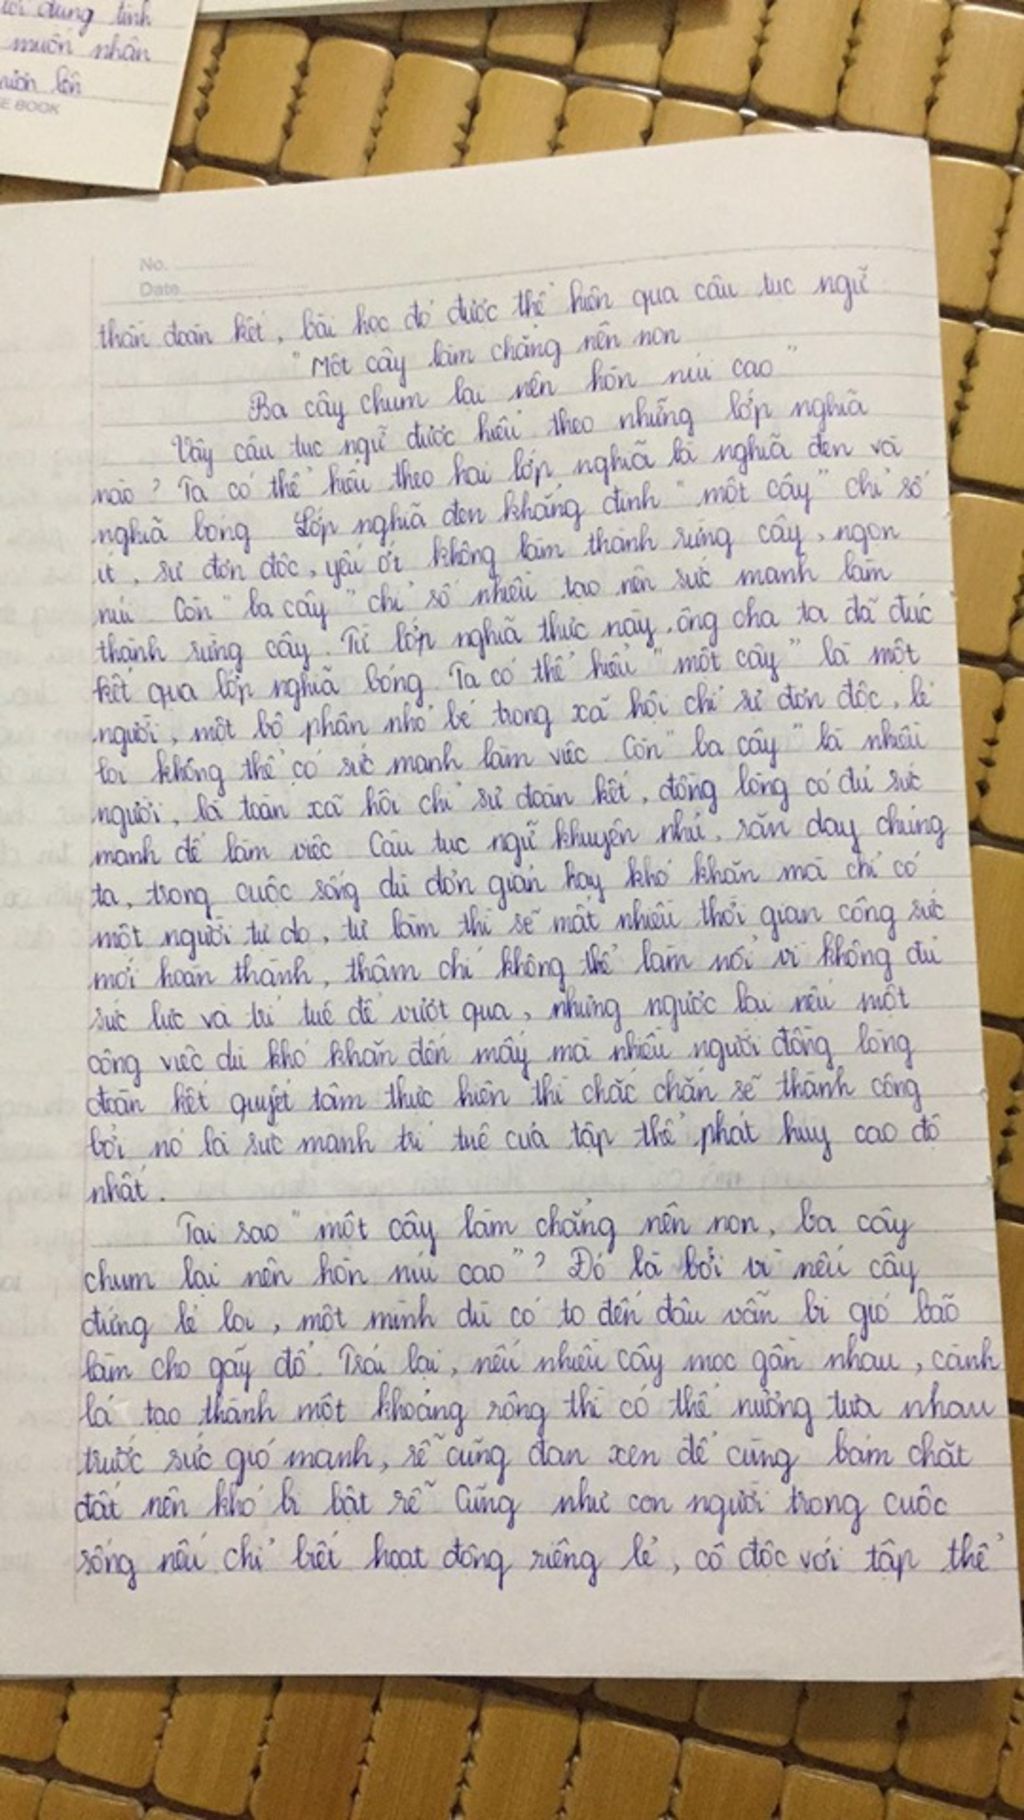 lợi dụng tình
muốn nhân
vươn lên
E BOOK
No.
Date
thần đoàn kết, bài học đó được thể hiện qua câu tục ngữ
"Một cây làm chẳng nên non
Ba cây chụm lại nên hòn núi cao"
Vậy câu tục ngữ được hiểu theo những lớp nghĩa
nào? Ta có thể hiểu theo hai lớp nghĩa là nghĩa đen và
nghĩa bóng. Lớp nghĩa đen khẳng định "một cây" chỉ số
ít, sự đơn độc, yếu ớt không làm thành rừng cây, ngọn
núi. Còn "ba cây" chỉ số nhiều tạo nên sức mạnh làm
thành rừng cây. Từ lớp nghĩa thực này, ông cha ta đã đúc
kết qua lớp nghĩa bóng. Ta có thể hiểu "một cây" là một
người, một bộ phận nhỏ bé trong xã hội chỉ sự đơn độc, lẻ
loi không thể có sức mạnh làm việc. Còn "ba cây" là nhiều
người, là toàn xã hội chỉ sự đoàn kết, đồng lòng có đủ sức
mạnh để làm việc. Câu tục ngữ khuyên nhủ, răn dạy chúng
ta, trong cuộc sống dù đơn giản hay khó khăn mà chỉ có
một người tự do, tự làm thì sẽ mất nhiều thời gian công sức
mới hoàn thành, thậm chí không thể làm nổi vì không đủ
sức lực và trí tuệ để vượt qua, nhưng ngược lại nếu một
công việc dù khó khăn đến mấy mà nhiều người đồng lòng
đoàn kết quyết tâm thực hiện thì chắc chắn sẽ thành công
bởi nó là sức mạnh trí tuệ của tập thể phát huy cao độ
nhất.
Tại sao "một cây làm chẳng nên non, ba cây
chụm lại nên hòn núi cao"? Đó là bởi vì nếu cây
đứng lẻ loi, một mình dù có to đến đâu vẫn bị gió bão
làm cho gãy đổ. Trái lại, nếu nhiều cây mọc gần nhau, cành
lá tạo thành một khoảng rộng thì có thể nương tựa nhau
trước sức gió mạnh, rễ cũng đan xen để cùng bám chặt
đất nên khó bị bật rễ. Cũng như con người trong cuộc
sống nếu chỉ biết hoạt động riêng lẻ, cô độc với tập thể